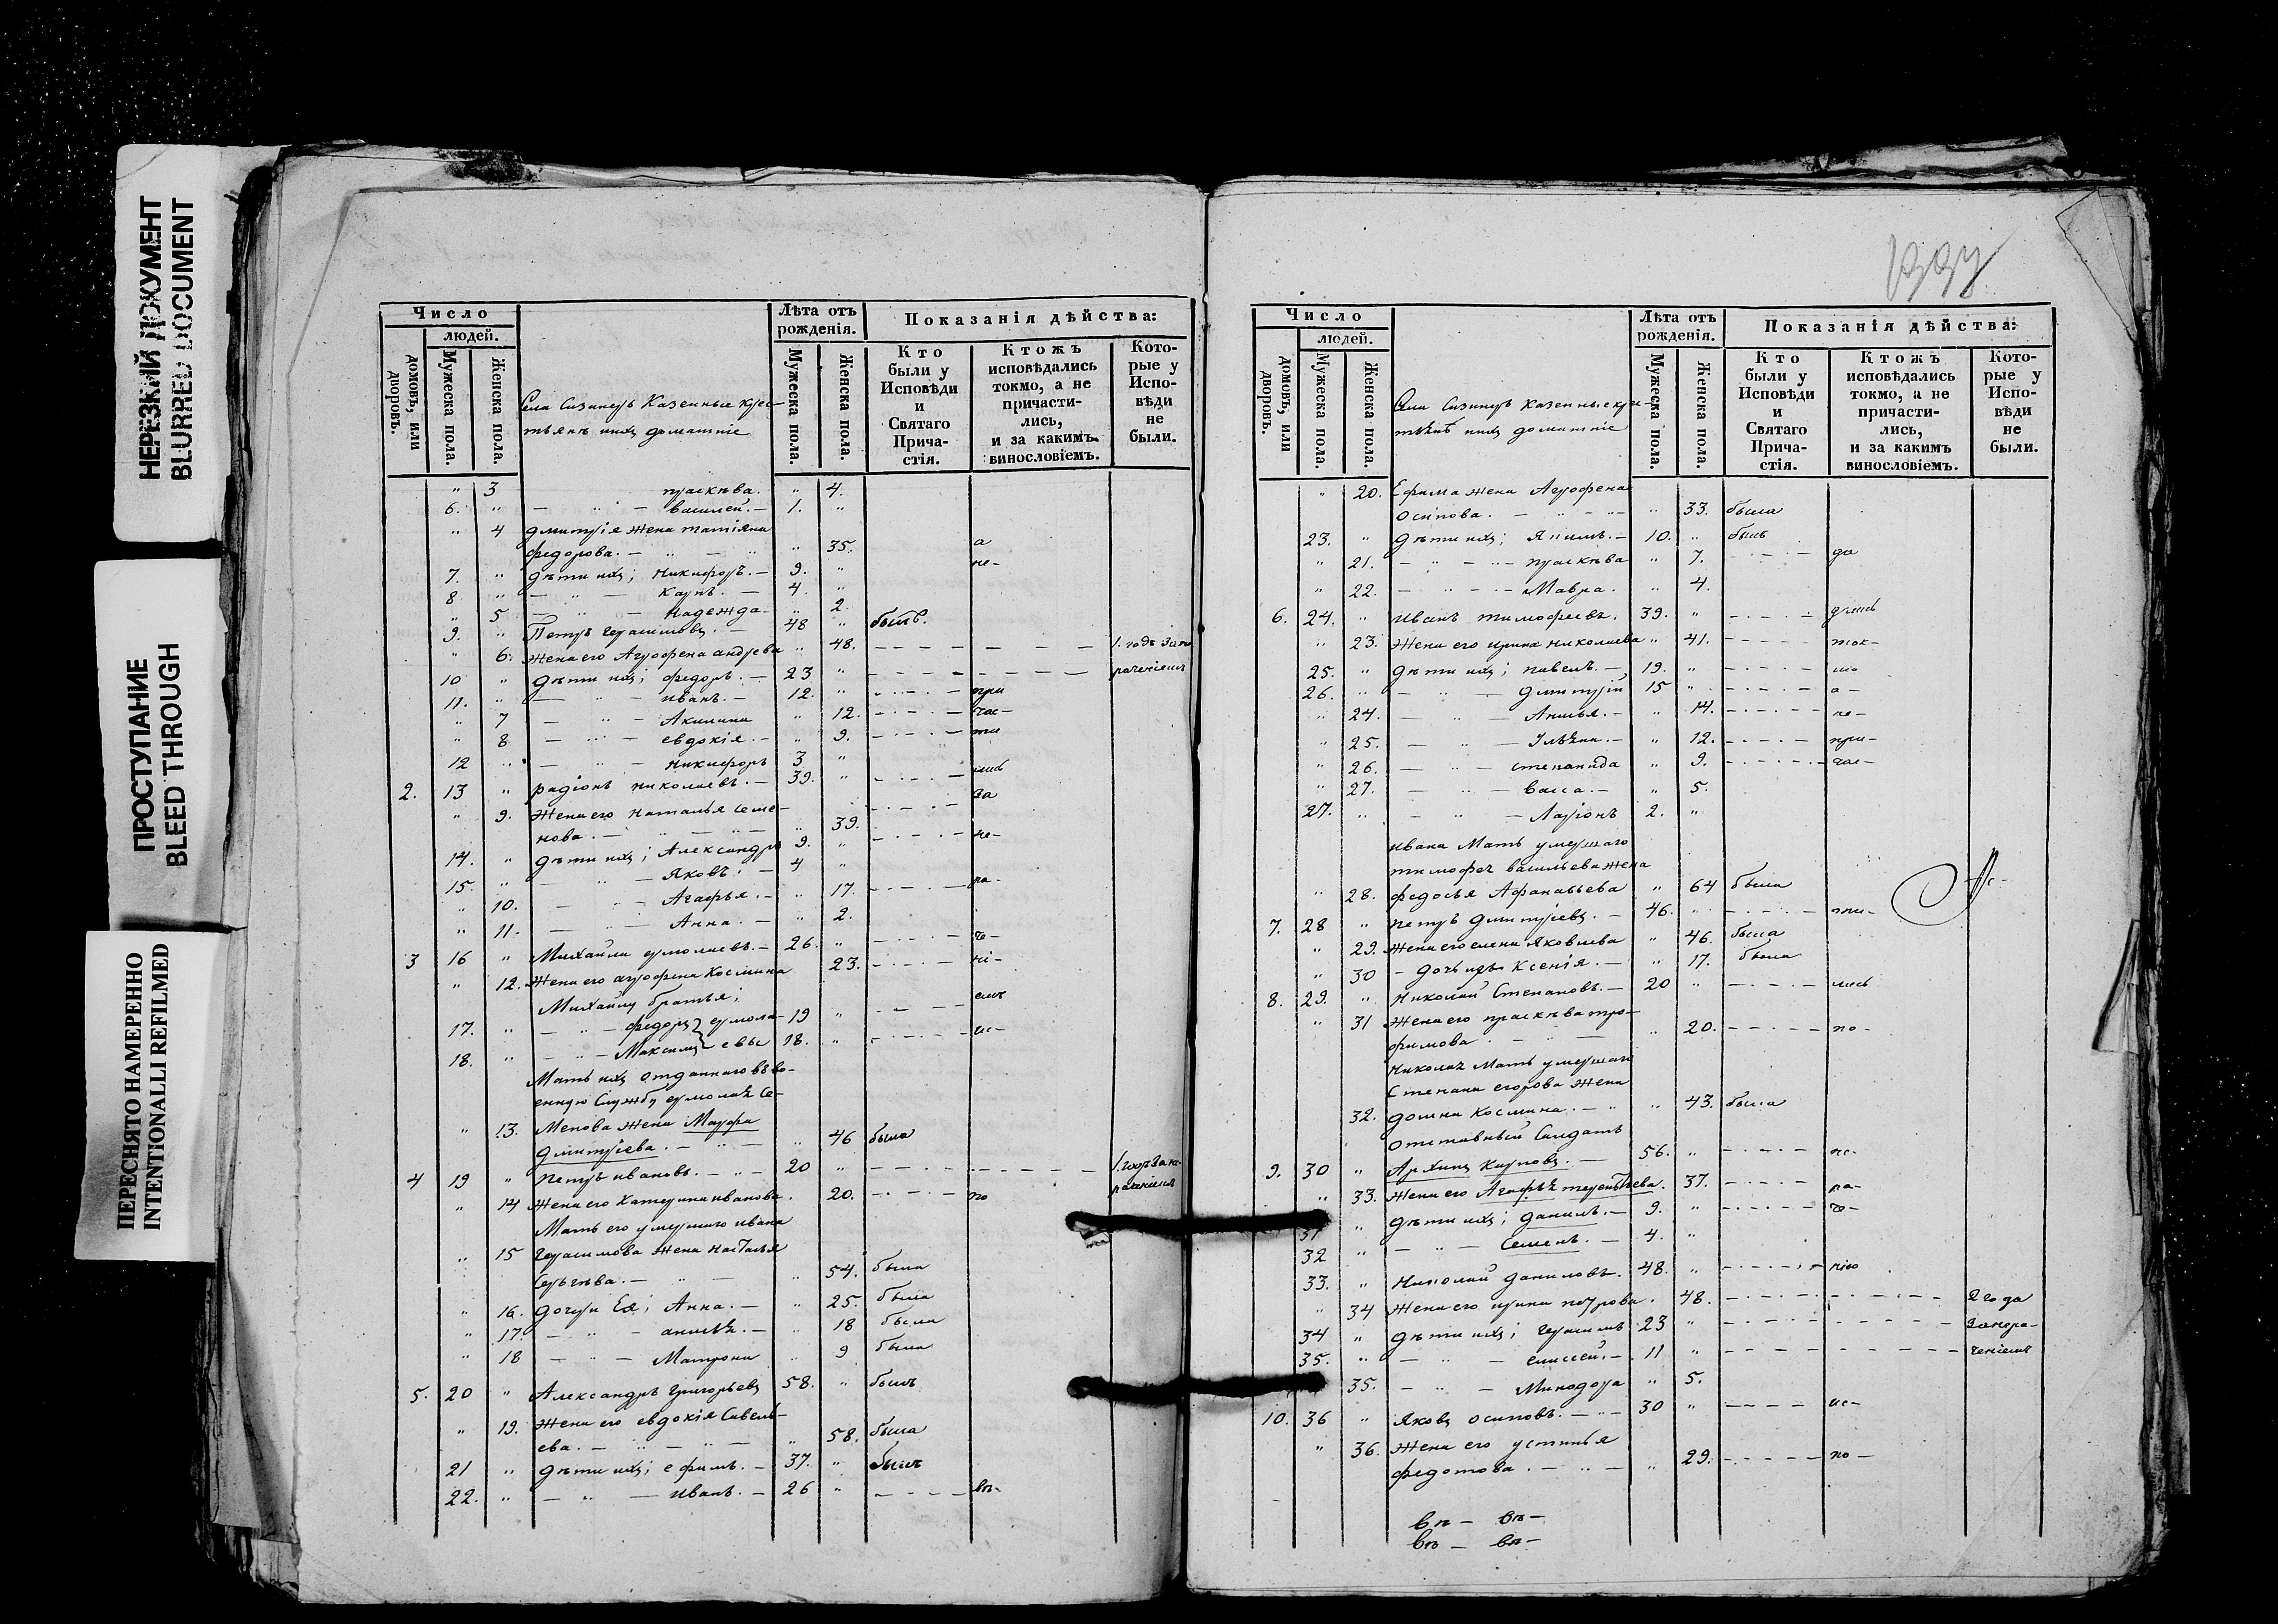 НЕРЕЗКИЙ ДОКУМЕНТ
BLURRED DOCUMENT
ПРОСТУПАНИЕ
BLEED THROUGH
ПЕРЕСНЯТО НАМЕРЕННО
INTENTIONALLI REFILMED
Число
людей.
домовъ, или дворовъ.
Мужеска пола.
Женска пола.
Села Сизинеръ Казенные крес-
тьянъ ихъ домашніе
Лѣта отъ рожденія.
Мужеска пола.
Женска пола.
Показанія дѣйства:
Кто были у Исповѣди и Святаго Причастія.
Ктожъ исповѣдались токмо, а не причастились, и за какимъ винословіемъ.
Которые у Исповѣди не были.
" 3 параскѣва. " 4.
6. " — " — василей. — 1. "
" 4 дмитрія жена татіяна
федорова. — " — " " 35. а
7. " дѣти ихъ; никифоръ. — 9. " не-
8 " — " — карпъ. — 4. "
" 5 — " — надежда — " 2.
9. " Петръ герасимовъ. — 48 " былъ.
" 6. жена его Агрофена андреева " 48. 1. годъ за не
10 " дѣти ихъ; федоръ. — 23 " рачениемъ
11. " — " — иванъ. — 12. " при
" 7 — " — Акилина " 12. час-
" 8 — " — евдокія. — " 9. ти
12 " — " — никифоръ 3 "
2. 13 " радіонъ николаевъ. — 39. " лись
" 9. жена его наталья семе- за
нова. — " — " — " 39. не-
14. " дѣти ихъ; Александръ 9. "
15. " — " — Яковъ. — 4 "
" 10. — " — Агафья. — " 17. ра-
" 11. — " — Анна. — " 2.
3 16 " Михайла ермолаевъ. — 26. " че-
" 12. жена его агрофена Космина 23. ні-
Михайлы братья; емъ
17. " — " — федоръ ермола- 19 "
18. " — " — Максимъ евы 18. " ис-
Мать ихъ отданнаго въ во-
енную Службу ермолая Се-
" 13. менова жена Марфа
дмитріева. — " — " 46 была
4 19 " петръ ивановъ. — " — 20 " 1. годъ за не-
" 14 жена его Катерина иванова. 20. по рачениемъ
Мать его умершаго ивана
" 15 герасимова жена наталья
Сергѣева. — " — " 54. была
" 16. дочери Ея; Анна. — " 25. была
" 17. — " — анисья. — " 18 была
" 18 — " — Матрона " 9 была
5. 20 " Александръ григорьевъ 58. " былъ
" 19. жена его евдокія Савель-
ева. — " — " — " 58. была
21 " дѣти ихъ; ефимъ. — 37. " былъ
22. " — " — иванъ. — 26 " вѣ-
Число
людей.
домовъ, или дворовъ.
Мужеска пола.
Женска пола.
Села Сизинеръ казенные кре-
стьянъ ихъ домашніе
Лѣта отъ рожденія.
Мужеска пола.
Женска пола.
Показанія дѣйства:
Кто были у Исповѣди и Святаго Причастія.
Ктожъ исповѣдались токмо, а не причастились, и за какимъ винословіемъ.
Которые у Исповѣди не были.
" 20. Ефима жена Агрофена
Осипова. — " — " 33. была
23. " дѣти ихъ; Якимъ. — 10. " былъ
" 21. — " — параскѣва " 7. да
" 22. — " — Мавра. " 4.
6. 24. " иванъ тимофеевъ. 39. "
" 23. жена его ирина николаева " 41. ток-
25. " дѣти ихъ; павелъ. — 19. " мо
26. " — " — дмитрій 15 " а-
" 24. — " — Анисья. — " 14. не-
" 25. — " — Улѣяна. — " 12. при-
" 26. — " — степанида " 9. час-
" 27. — " — васса. — " 5.
27. " — " — Ларіонъ 2. "
ивана Мать умершаго
тимофея васильева жена
" 28. федосья Афанасьева " 64 была
7. 28 " петръ дмитріевъ. — 46. " ти-
" 29. жена его елена Яковлева " 46. была
" 30 — дочь ихъ Ксенія. — " 17. была
8. 29. " николай Степановъ. — 20 " лись
" 31 жена его праскѣва тро-
фимова. — " — " 20. по-
николая Мать умершаго
Степана егорова жена
32. домна Космина. — " " 43. была
отставный Салдатъ
9. 30 " Архипъ карповъ. — 56. " не-
" 33. жена его Агафья терентьева. 37. ра-
31 " дѣти ихъ; данилъ. — 9. " че-
32 " — " — Семенъ. — 4. "
33. " николай даниловъ. 48. " нію
" 34 жена его ирина петрова. 48. 2 года
34 " дѣти ихъ; герасимъ 23 " за нера-
35. " — " — елисей. — 11 " ченіемъ
35. — " — Минодора " 5.
10. 36 " Яковъ осиповъ. — " — 30 " ис-
" 36. жена его устинья
федотова. — " — " 29. по-
вѣ — вѣ —
вѣ — вѣ —